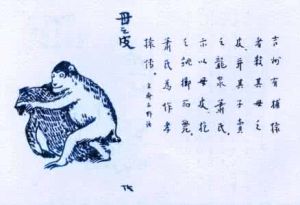 母之皮
吉州有捕猿
者殺其母之
皮并其子賣
之龍泉蕭氏。
示以母皮，抱
之跳擲而斃。
蕭氏為作孝
猿傳。
宋齊東野語